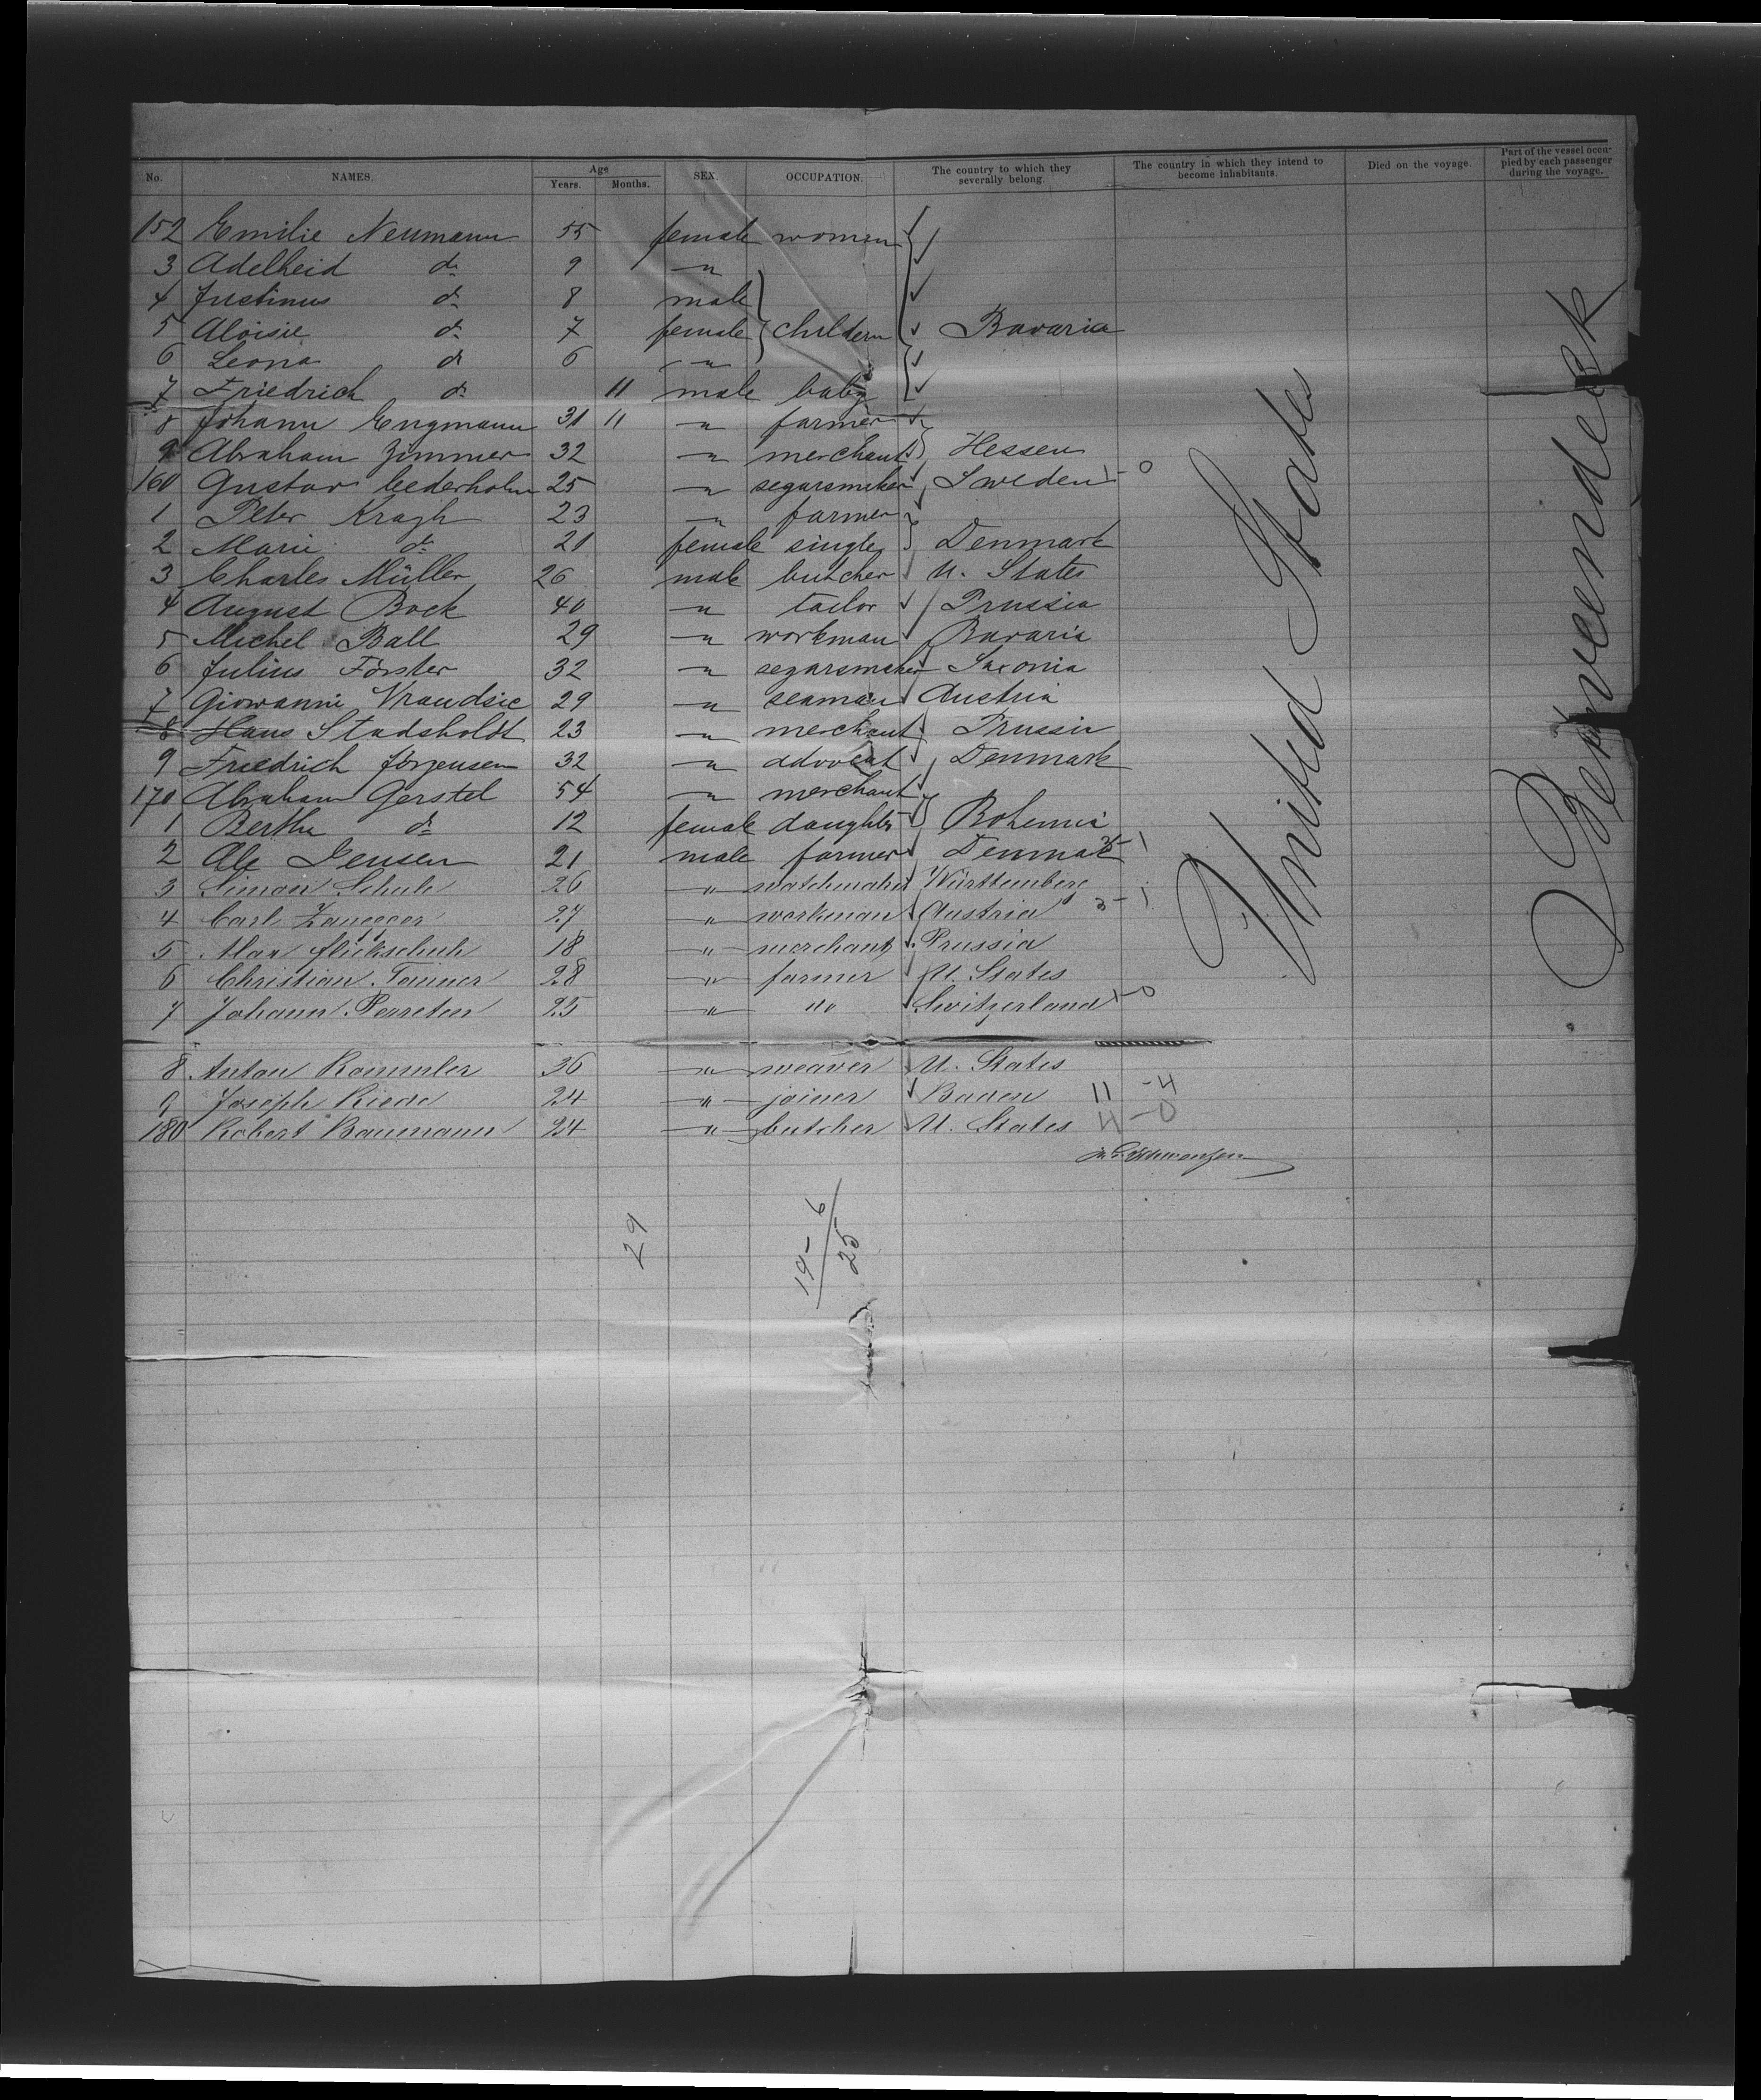 No. NAMES. Age Years. Months. SEX. OCCUPATION. The country to which they severally belong. The country in which they intend to become inhabitants. Died on the voyage. Part of the vessel occupied by each passenger during the voyage.
152 Emilie Neumann 55 female women
3 Adelheid do 9 "
4 Justinus do 8 male
5 Aloisie do 7 female childern Bavaria
6 Leona do 6 "
7 Friedrich do 11 male baby
8 Johann Engmann 31 11 " farmer
9 Abraham Zimmer 32 " merchant Hessen
160 Gustav Cederholm 25 " segarsmaker Sweden 1-0
1 Peter Kragh 23 " farmer
2 Marie do 21 female single Denmark
3 Charles Müller 26 male butcher U. States
4 August Bock 40 " tailor Prussia
5 Michel Ball 29 " workman Bavaria
6 Julius Förster 32 " segarsmaker Saxonia
7 Giowanni Vraudsic 29 " seaman Austria
8 Hans Stadsholdt 23 " merchant Prussia
9 Friedrich Jörgensen 32 " advocat Denmark
170 Abraham Gerstel 54 " merchant
1 Bertha do 12 female daughter Bohemia
2 Ole Jensen 21 male farmer Denmark
3 Simon Schule 26 " Württemberg
4 Carl Zangger 27 " workman Austria 3-1
5 Max 18 " merchant Prussia
6 Christian Tanner 28 " farmer U. States
7 Johann Perreten 25 " " Switzerland 1-0
8 Anton Rammler 36 " weaver U. States
9 Joseph Riede 24 " joiner Baden 11 -4
180 Robert Baumann 24 " butcher U. States 4-0
United States
Zwischendeck
29
19-6
25